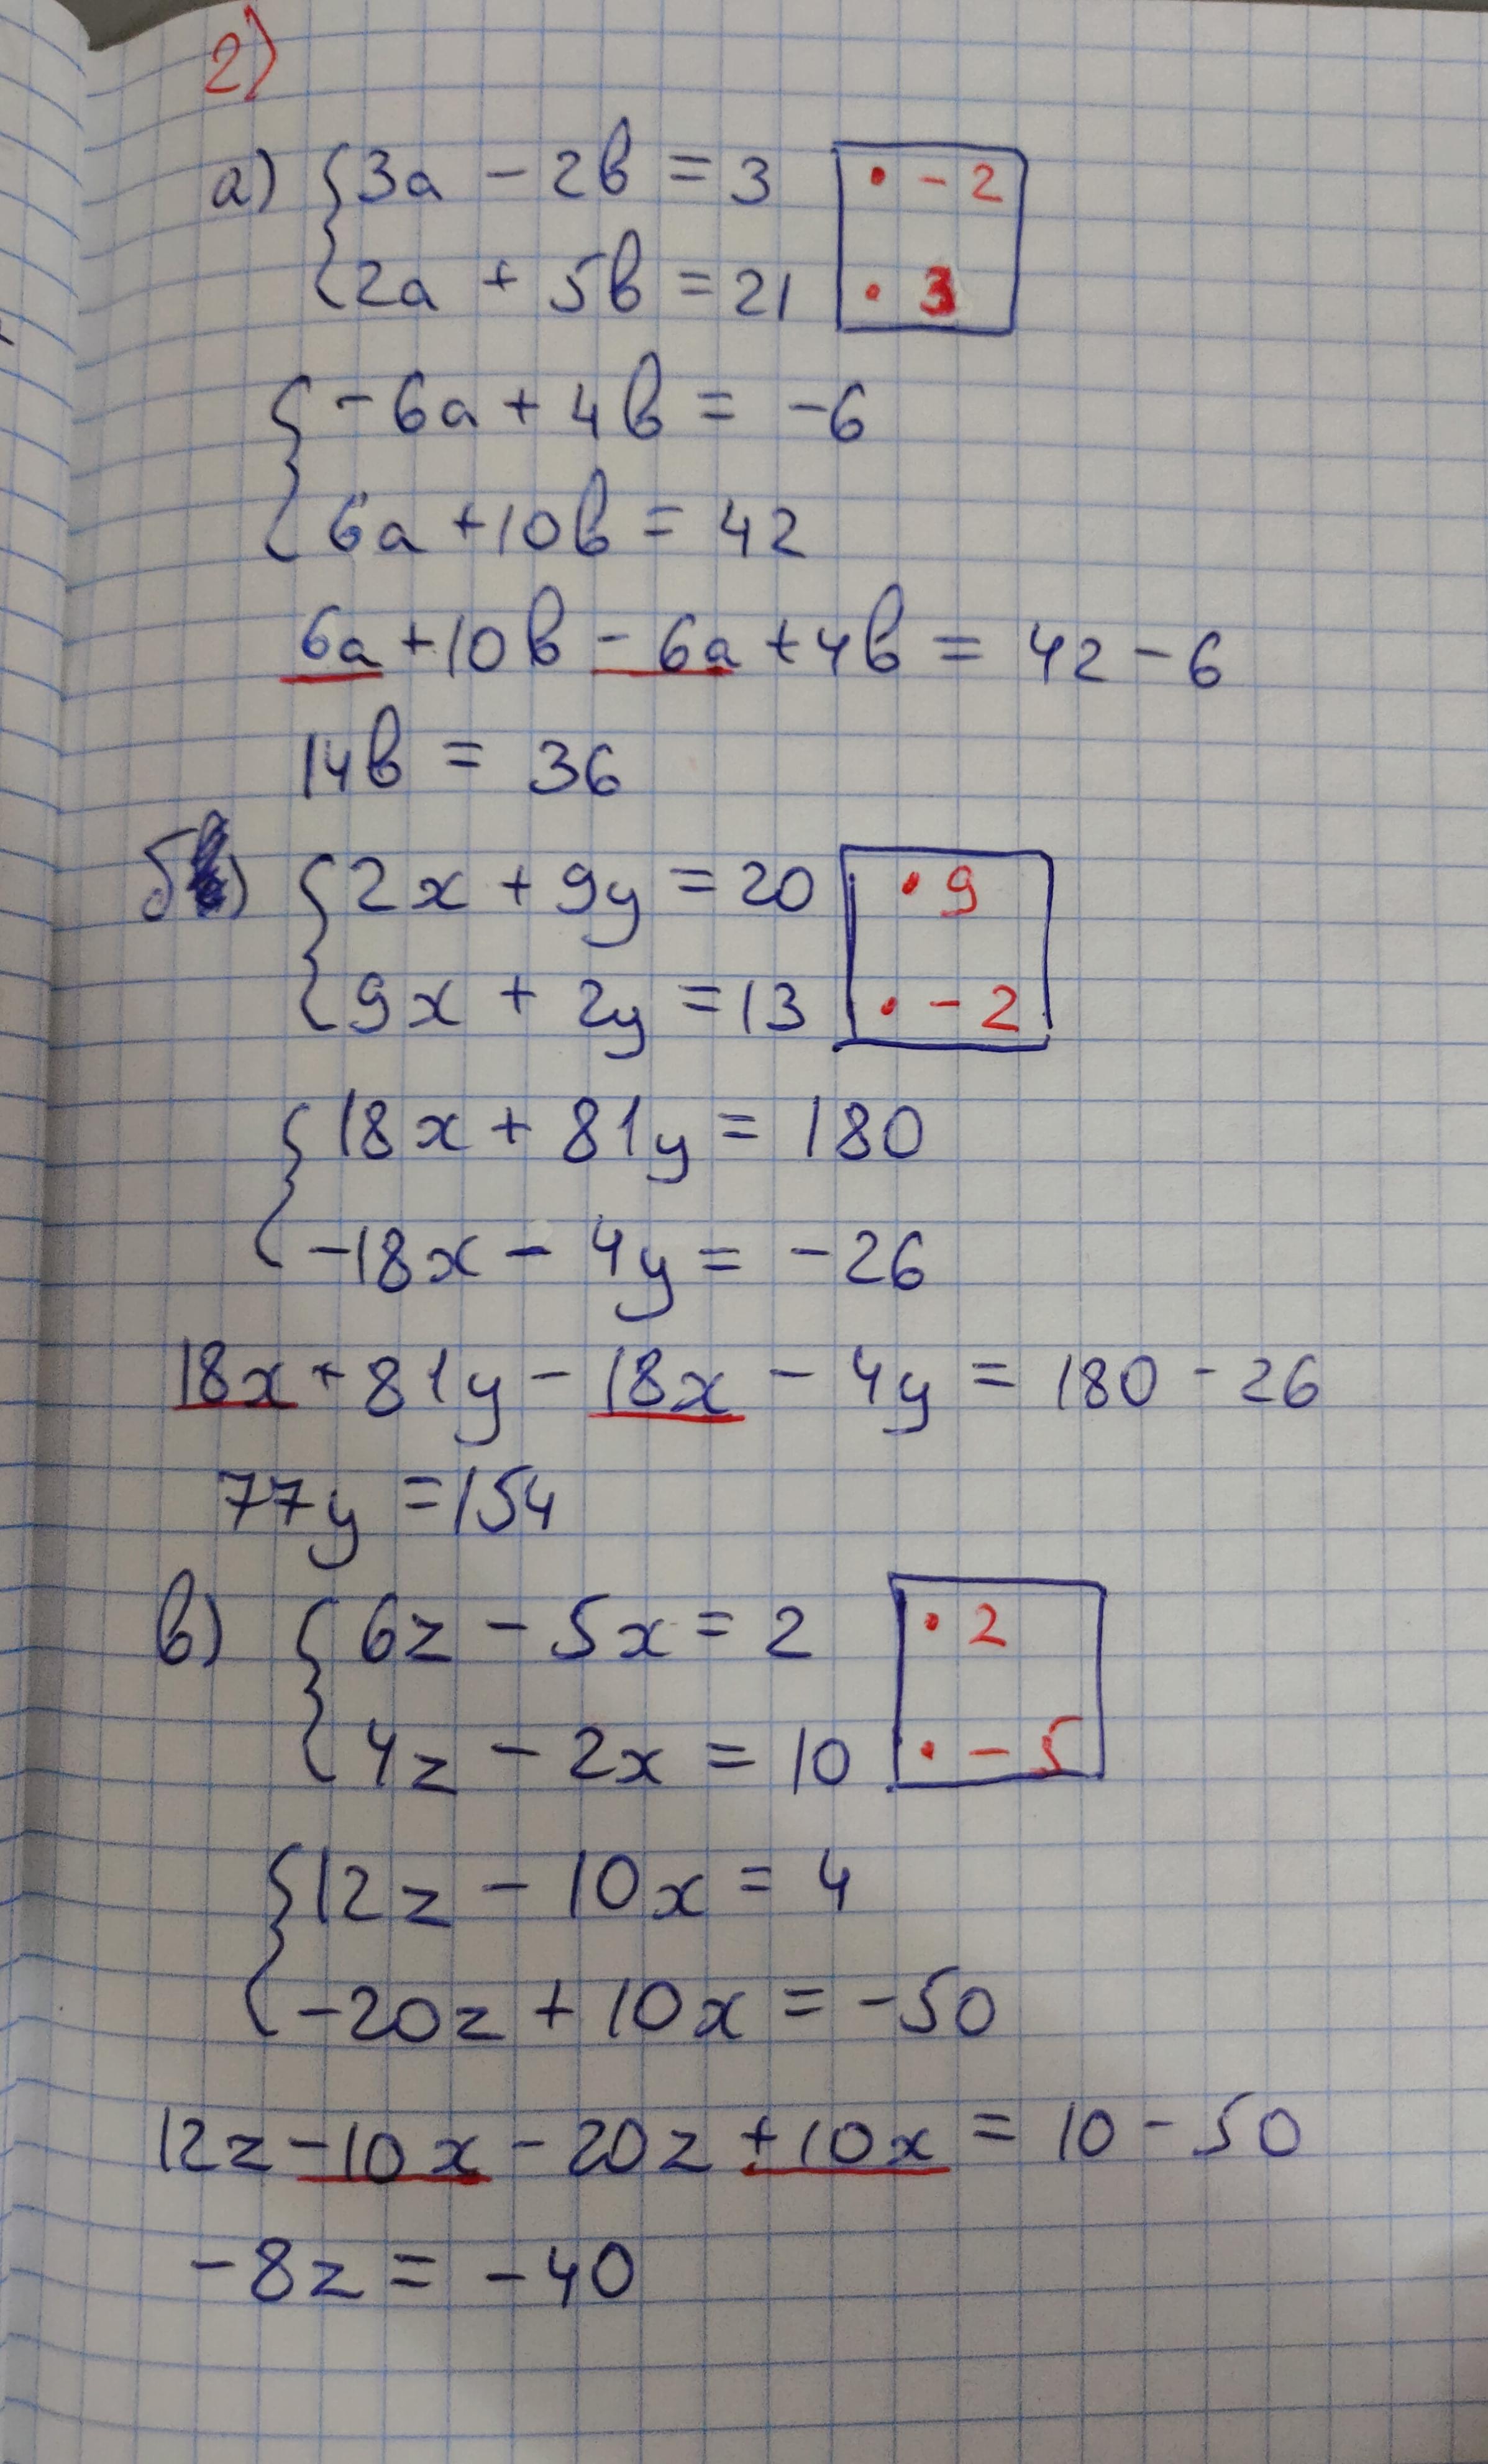 2)
а) {3a - 2b = 3 · - 2
{2a + 5b = 21 · 3
{-6a + 4b = -6
{6a + 10b = 42
6a + 10b - 6a + 4b = 42 - 6
14b = 36
б) {2x + 9y = 20 · 9
{9x + 2y = 13 · - 2
{18x + 81y = 180
{-18x - 4y = -26
18x + 81y - 18x - 4y = 180 - 26
77y = 154
в) {6z - 5x = 2 · 2
{4z - 2x = 10 · - 5
{12z - 10x = 4
{-20z + 10x = -50
12z - 10x - 20z + 10x = 10 - 50
-8z = -40